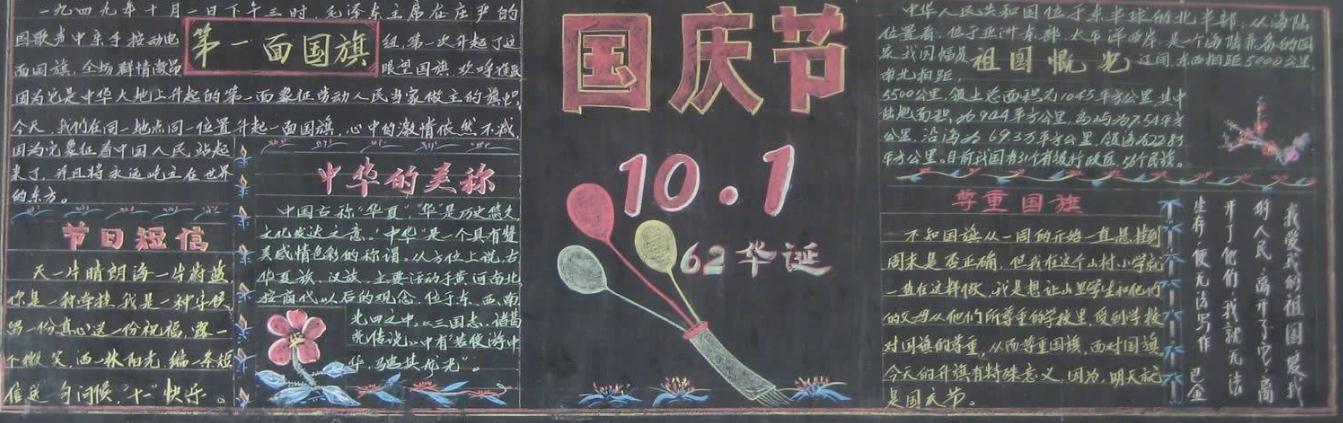 一九四九年十月一日下午三时，毛泽东主席在庄严的
国歌声中亲手按动电
第一面国旗
组，第一次升起了这
面国旗，全场群情激昂
眼望国旗，欢呼雀跃
因为它是中华大地上升起的第一面象征劳动人民当家做主的旗帜。
今天，我们在同一地点同一位置升起一面国旗，心中的激情依然不减，
因为它象征着中国人民站起
来了，并且将永远屹立在世界
的东方。
节日短信
天一片晴朗海一片蔚蓝
你是一种牵挂，我是一种守候
写一份真心送一份祝福，露一
个微笑，洒一抹阳光，编一条短
信送一句问候，"十一"快乐。
中华的美称
中国古称"华夏"，"华"是历史悠久
文化发达之意。"中华"是一个具有赞
美感情色彩的称谓。从方位上说，古
华夏族、汉族，主要活动于黄河南北，
按商代以后的观念，位于东、西、南、
北四方之中，《三国志，诸葛
亮传说》中有"若使游中
华，骋其龙光"。
国庆节
10.1
62华诞
中华人民共和国位于东半球的北半部，从海陆
位置看，位于亚洲东部，太平洋西岸，是一个海陆兼备的国
家，我国幅员
祖国概光
辽阔，东西相距5000公里，
南北相距，
5500公里，领土总面积为1045平方公里，其中
陆地面积，为
公里，沿海为
平方公里，目前我国有31个省级行政区，56个民族。
尊重国旗
不知国旗从一周的开始一直悬挂到
周末是否正确，但我在这个山村小学就
一直在这样做，我是想让山里学生和他们
的父母从他们所尊重的学校里，感到学校
对国旗的尊重，从而尊重国旗，面对国旗，
今天的升旗有特殊意义，因为，明天就
是国庆节。
我爱我的祖国，爱我
的人民，离开了它，离
开了他们，我就无法
生存，便无法写作 巴金